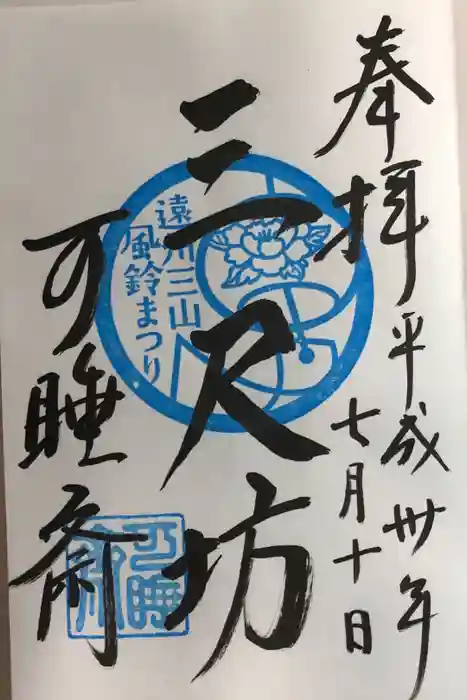 奉拝
平成卅年
七月十日
三尺坊
可睡斎
遠州三山
風鈴まつり
可睡